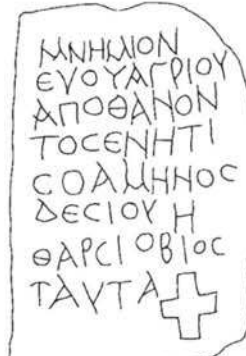 ΜΝΗΜΙΟΝ
ΕΝΟΥΑΓΡΙΟΥ
ΑΠΟΘΑΝΟΝ
ΤΟCΕΝΗΤΙ
CΟΑΜΗΝΟC
ΔΕCΙΟΥ Η
ΘΑΡCΙΟΒΙΟC
ΤΑΥΤΑ